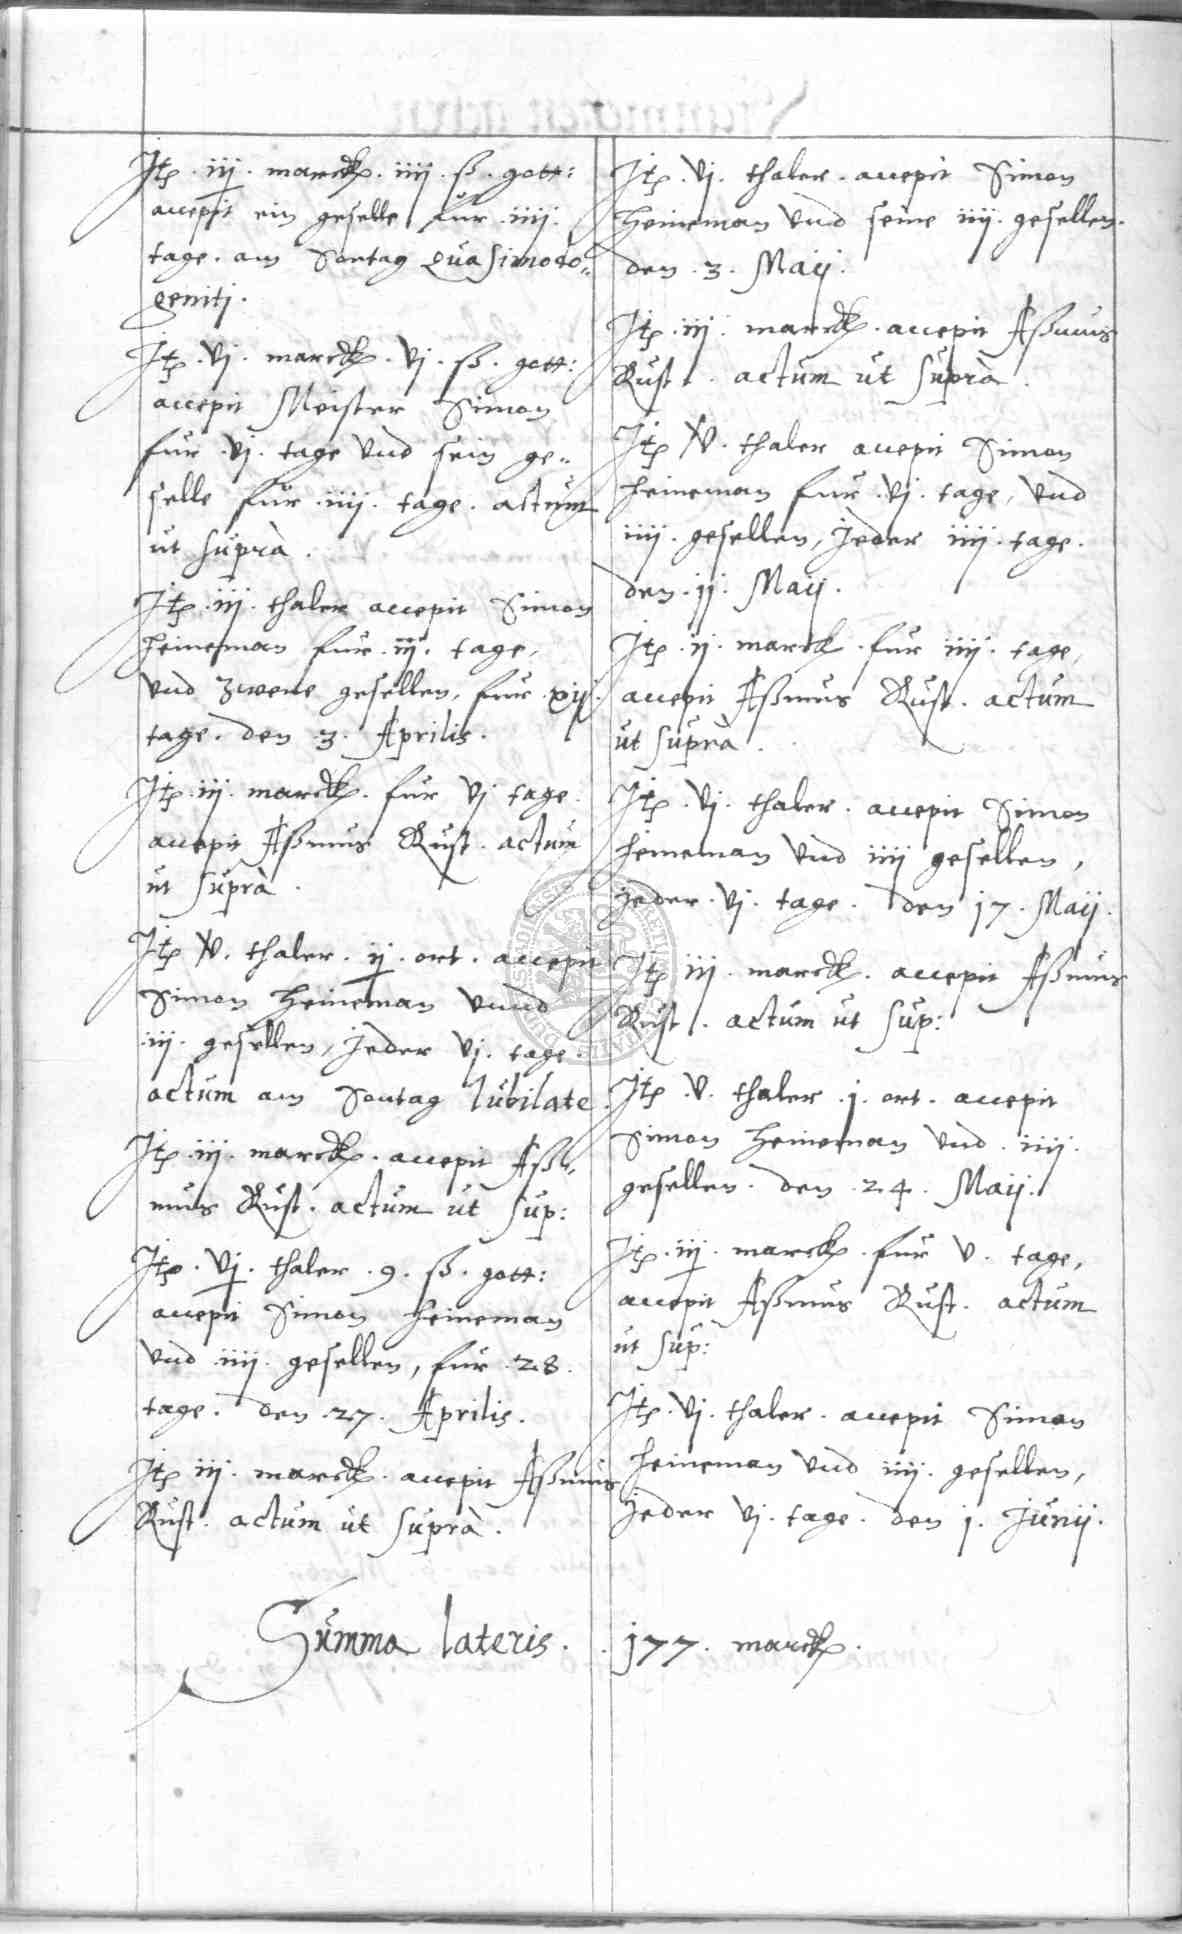 Jtz. iij. marck. iiij. ß. gott:
accepit ein geselle fur. iiij.
tage. am Sontag Quasimodo„
geniti.
Jtz. vj. marck. vj. ß. gott:
accepit Meister Simon
fur. vj. tage vnd sein ge„
selle fur. iiij. tage. actum
ut suprà.
Jtz. iij. thaler accepit Simon
Heineman fur. iij. tage,
vnd zwene gesellen, fur. xij.
tage. den 3. Aprilis.
Jtz. iij. marck. fur vj tage
accepit Aßmus Rust. actum
ut suprà.
Jtz v. thaler. ij. ort. accepit
Simon Heineman vnnd
iij. gesellen, Jeder vj. tage.
actum am Sontag Iubilate.
Jtz. iij. marck. accepit Aß„
mus Rust. actum ut sup:
Jtz. vj. thaler. 9. ß. gott:
accepit Simon Heineman
vnd iiij. gesellen, fur. 28.
tage. den. 27. Aprilis.
Jtz iij. marck. accepit Aßmus
Rust. actum ut suprà.
Jtz. vj. thaler. accepit Simon
Heineman vnd seine iiij. gesellen.
den. 3. Maij.
Jtz. iij. marck. accepit Aßmus
Rust. actum ut suprà.
Jtz v. thaler accepit Simon
Heineman fur. vj. tage, vnd
iiij. gesellen, Jeder iiij. tage.
den. jj. Maij.
Jtz. ij. marck. fur iiij. tage,
accepit Aßmus Rust. actum
ut suprà.
Jtz. vj. thaler. accepit Simon
Heineman vnd iiij gesellen,
Jeder. vj. tage. den j7. Maij.
Jtz iij. marck. accepit Aßmus
Rust. actum ut sup:
Jtz. v. thaler. j. ort. accepit
Simon Heineman vnd. iiij.
gesellen. den. 24. Maij.
Jtz. iij. marck. fur v. tage,
accepit Aßmus Rust. actum
ut sup:
Jtz. vj. thaler. accepit Simon
Heineman vnd iiij. gesellen,
Jeder vj. tage. den j. Junij.
Summa lateris. . j77. marck.